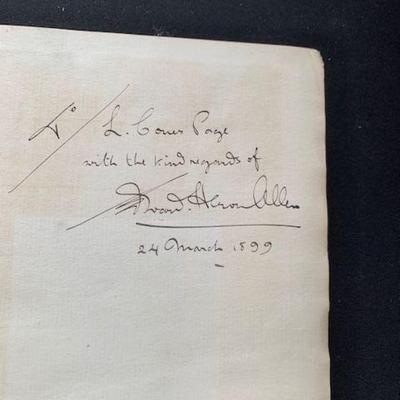 To
L. Coues Page
with the kind regards of
Edward. Heron Allen
24 March 1899